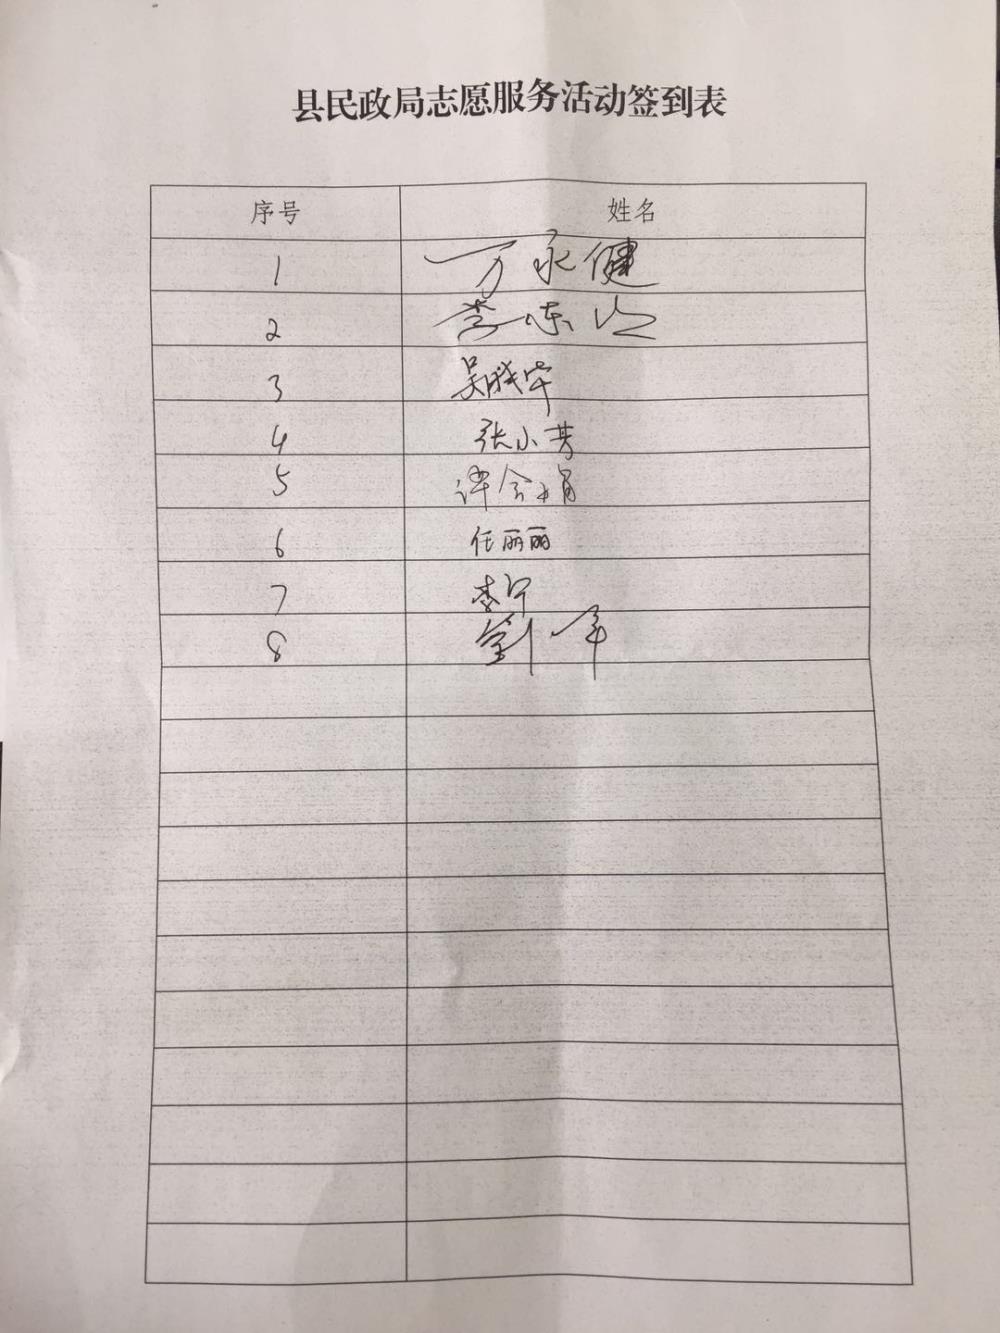 县民政局志愿服务活动签到表
序号 姓名
1 万永健
2 李
3 吴晓华
4 张小芳
5 谭会娟
6 任丽丽
7 李宁
8 刘军